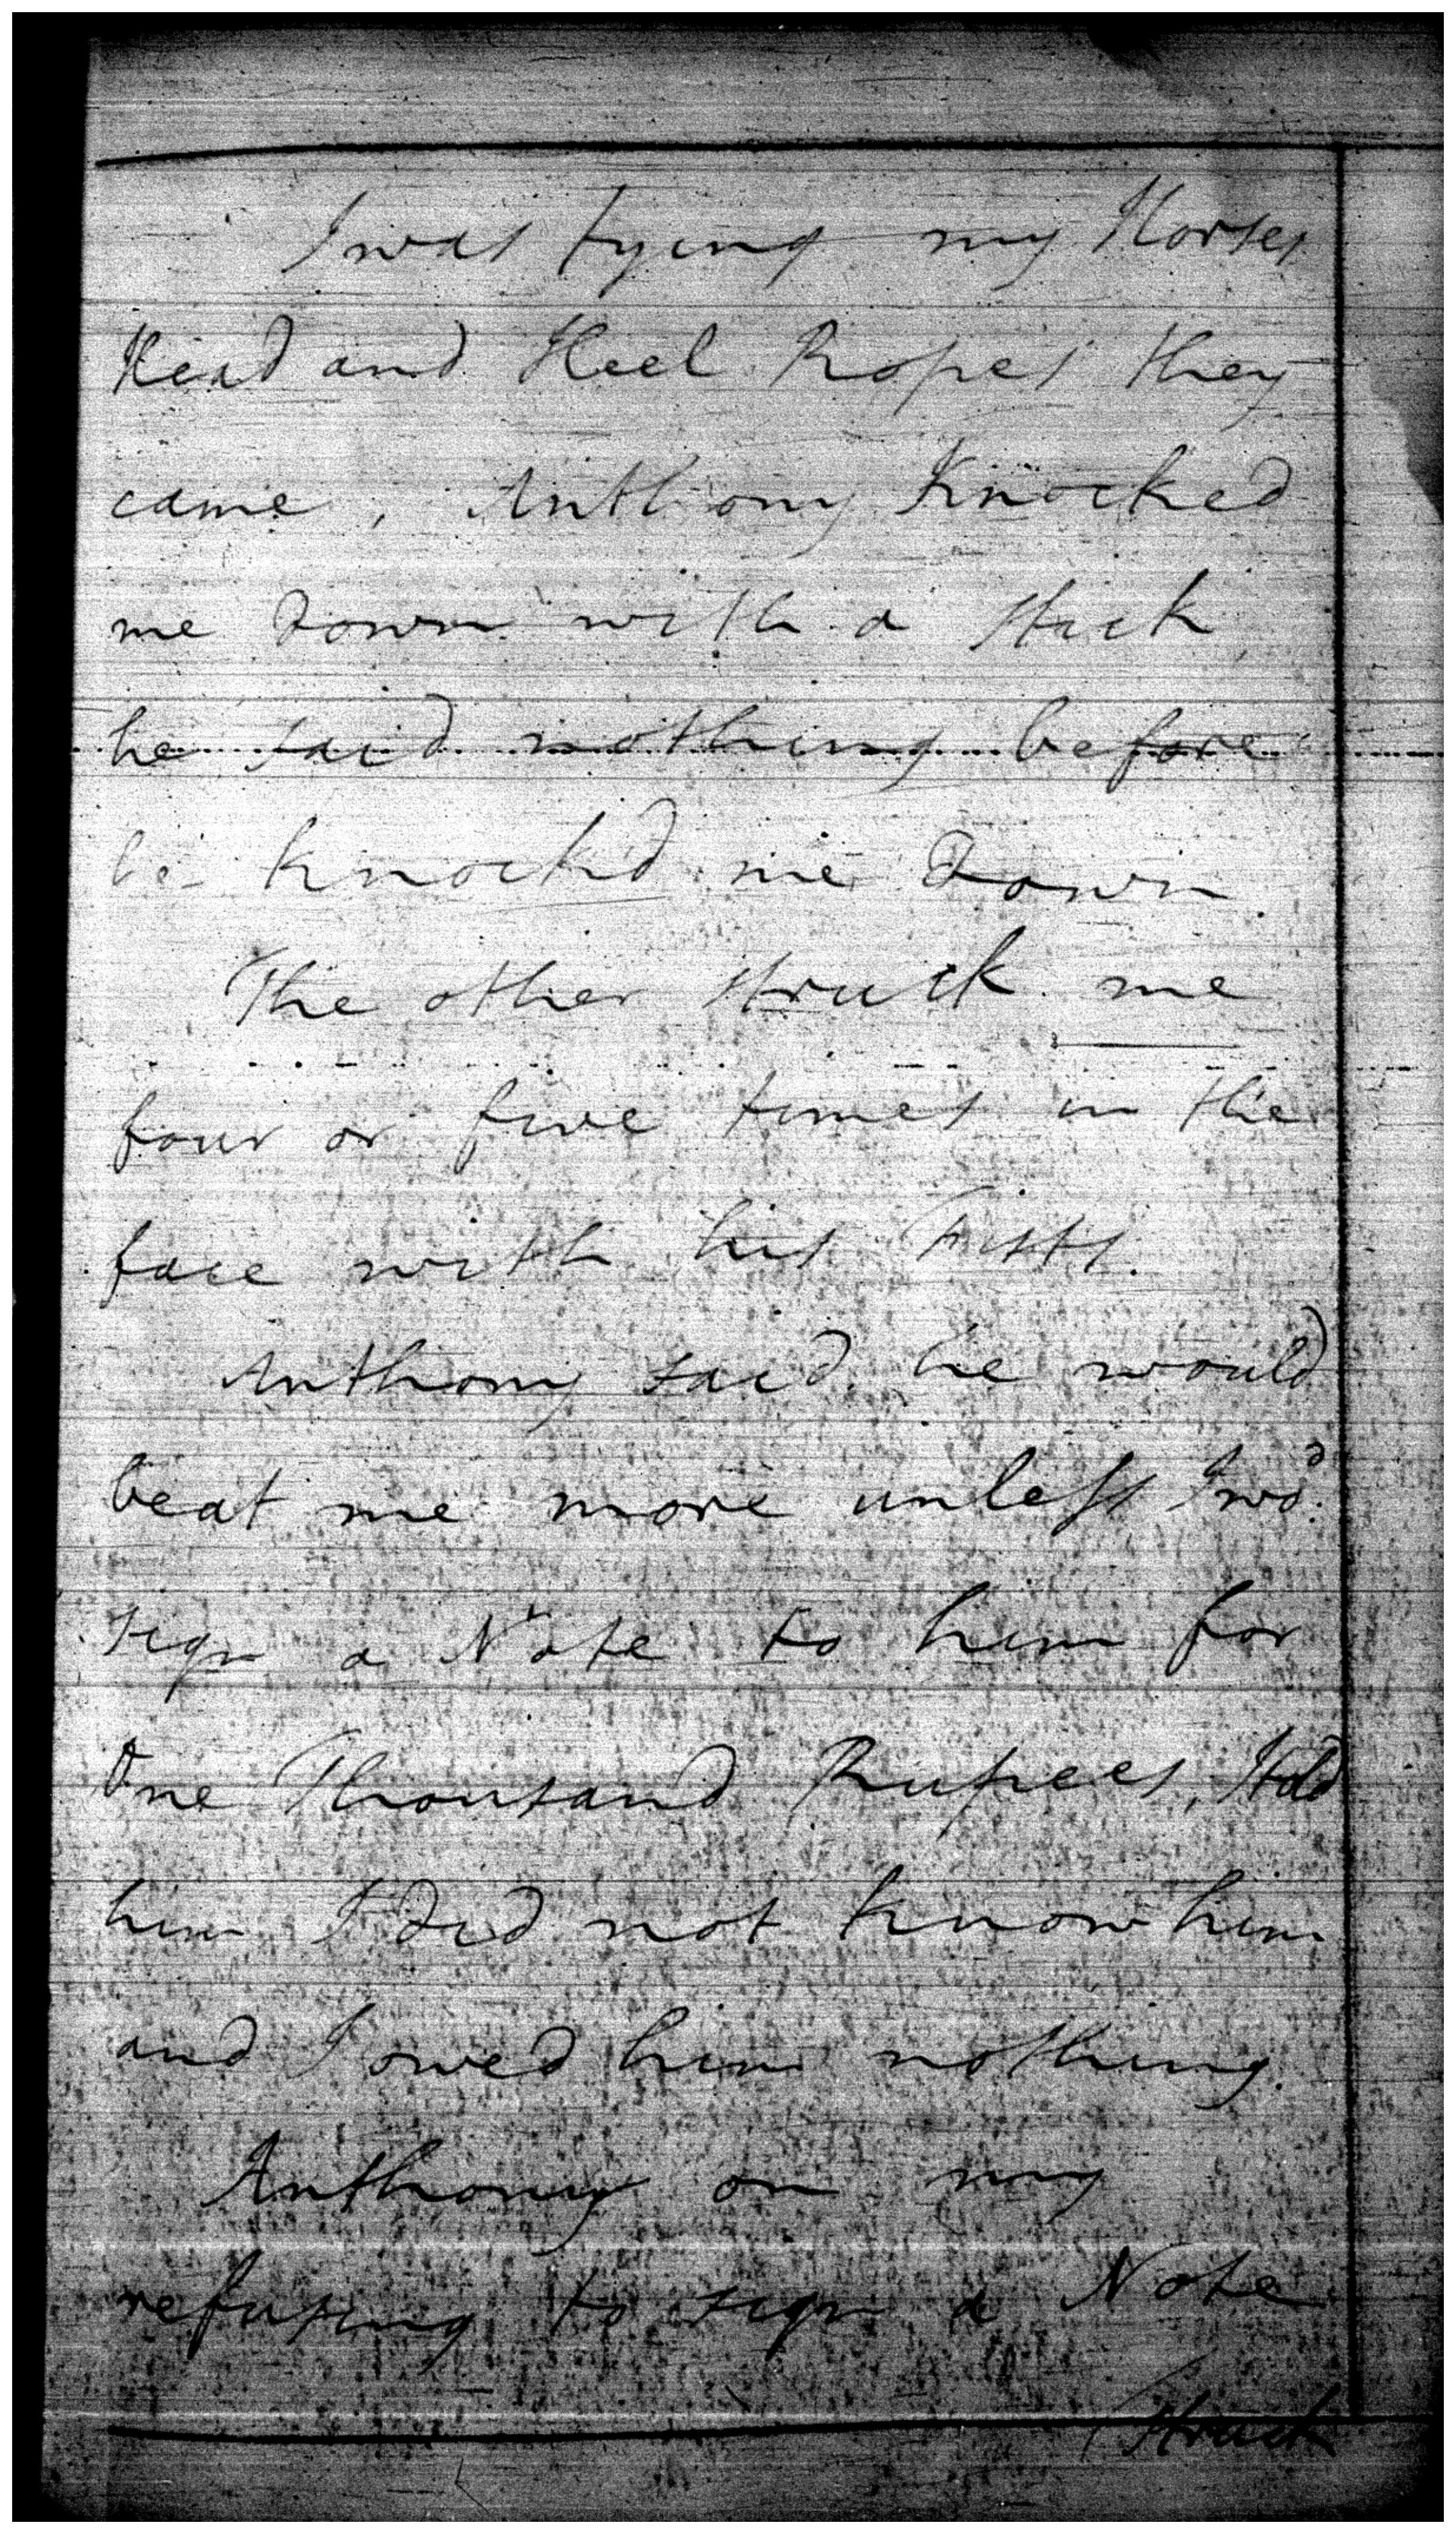 I was tying my Horses
Head and Heel Ropes they
came, Anthony Knocked
me down with a stick
he said nothing before
he knock'd me down.
The other struck me
four or five times in the
face with his Fists.
Anthony said he would
beat me more unless I wo.d
sign a Note to him for
One Thousand Rupees, I told
him I did not know him
and I owed him nothing.
Anthony on my
refusing to sign a Note
struck